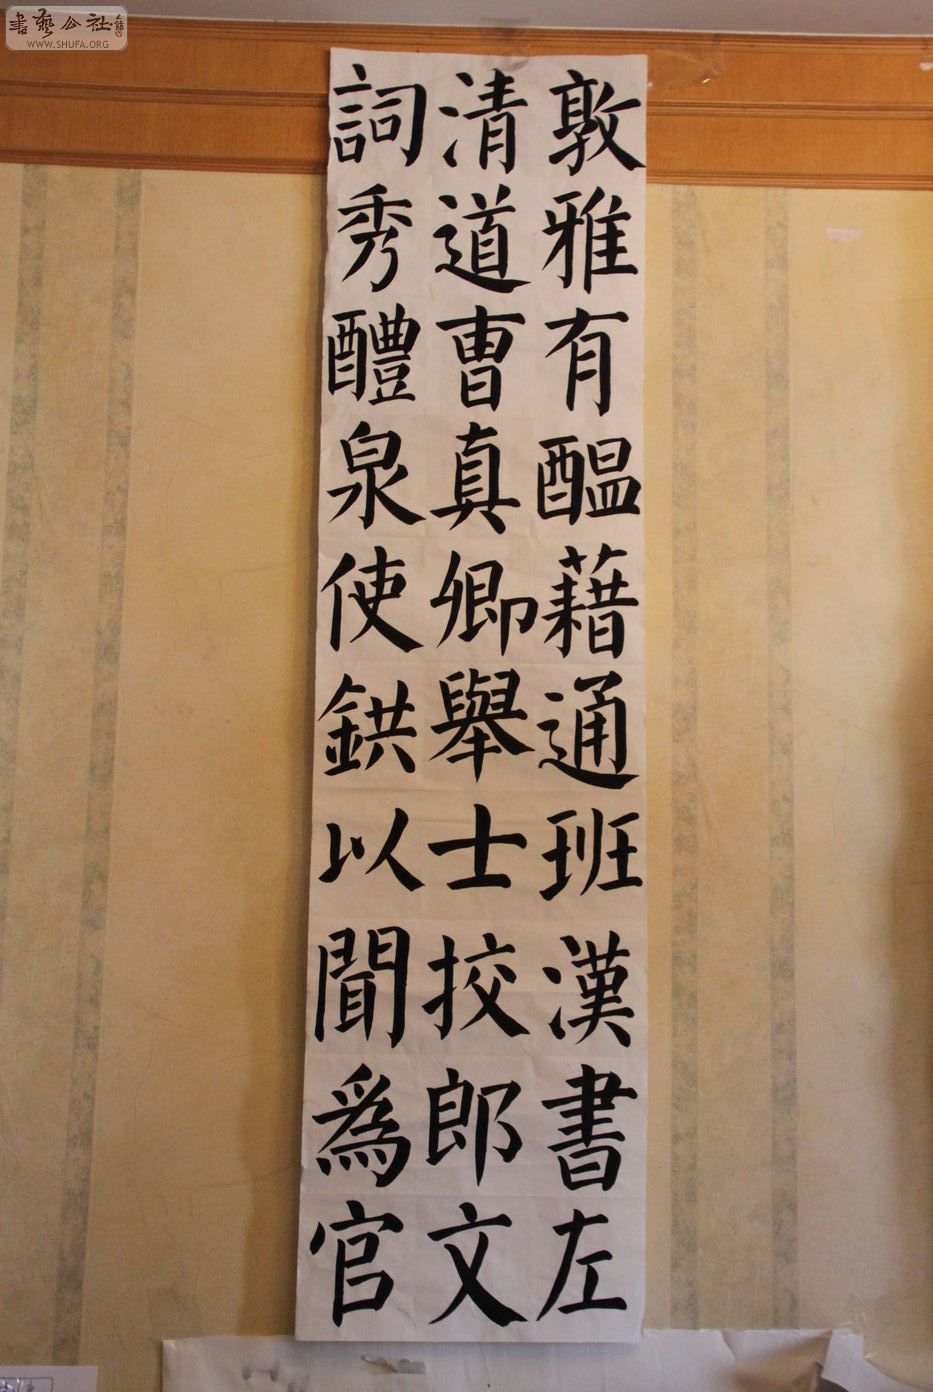 敦雅有醖藉通班漢書左
清道曹真卿舉士挍郎文
詞秀醴泉使鉷以聞為官
書藝公社
WWW.SHUFA.ORG